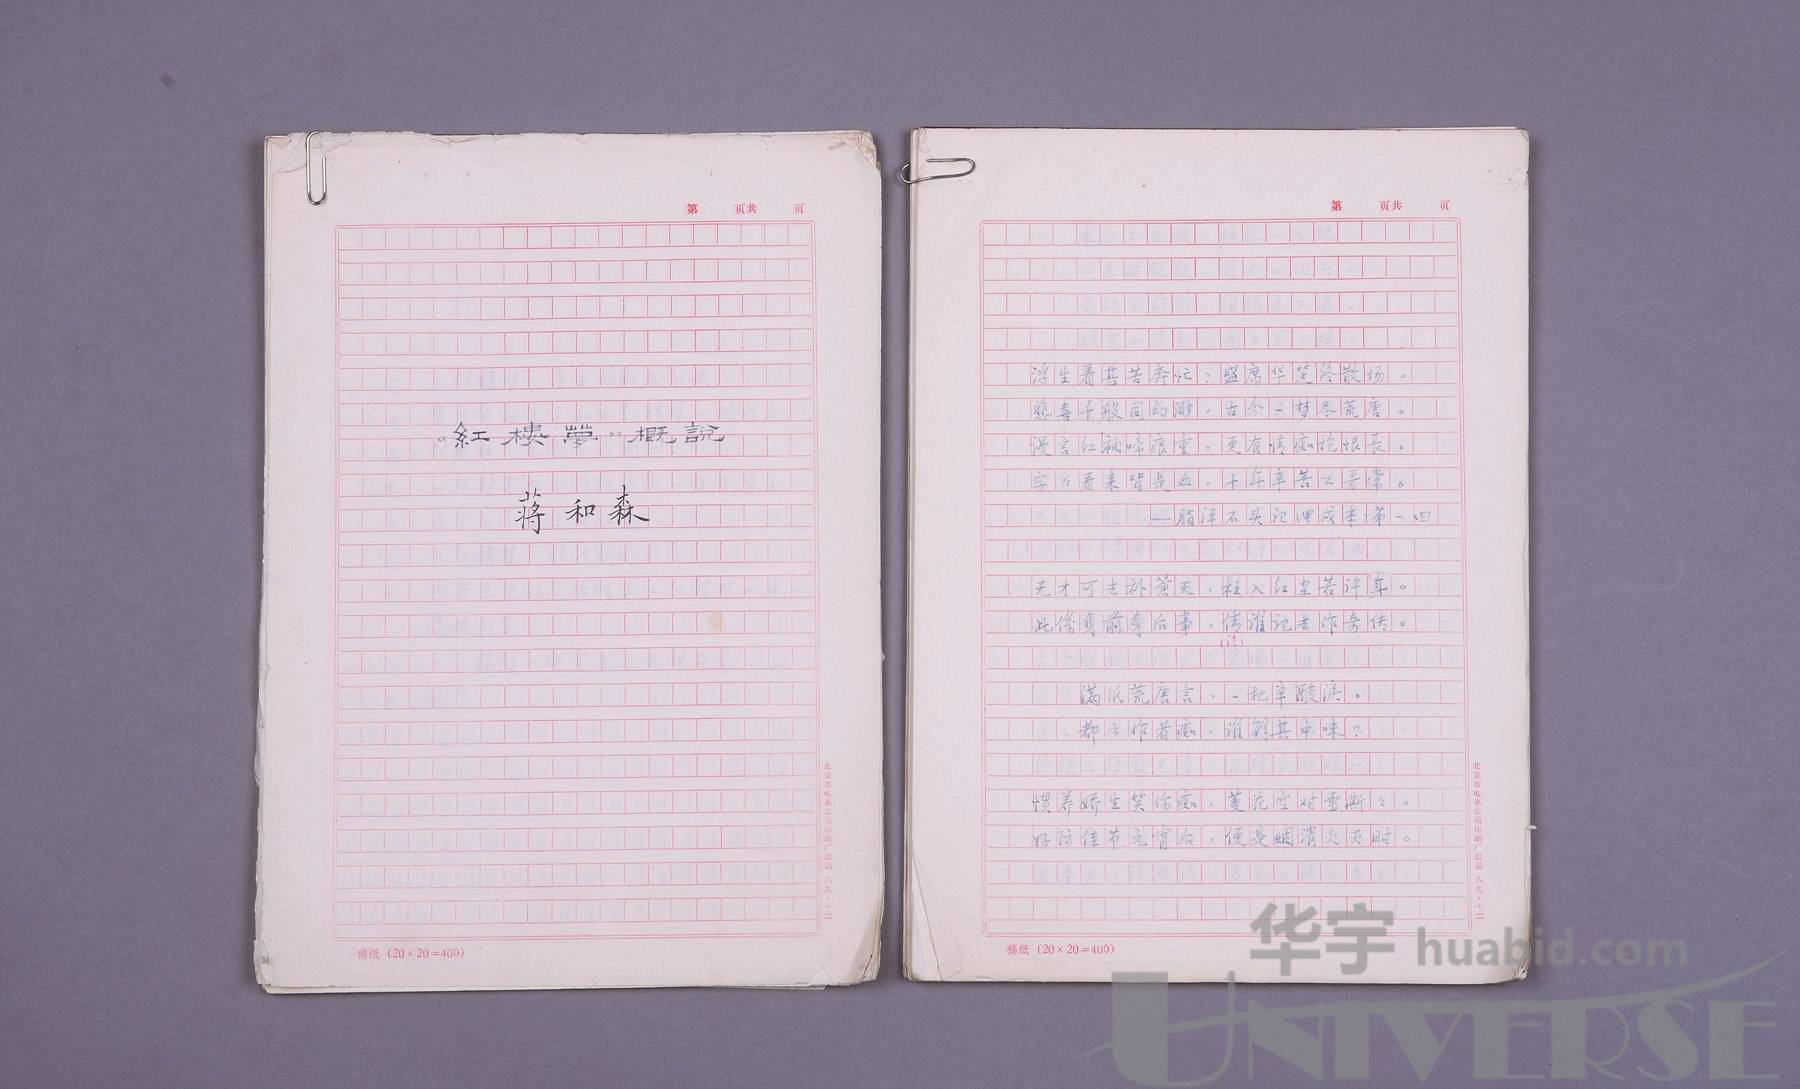 第 页共 页
《紅樓夢》概說
蔣和森
北京市电车公司印刷厂出品 六九·十二
稿纸（20×20=400）
第 页共 页
浮生着甚苦奔忙，盛席华筵终散场。
悲喜千般同幻渺，古今一梦尽荒唐。
漫言红袖啼痕重，更有情痴抱恨长。
字字看来皆是血，十年辛苦不寻常。
——脂评石头记甲戌本第一回
无才可去补苍天，枉入红尘若许年。
此係身前身后事，倩谁记去作奇传。
满纸荒唐言，一把辛酸泪。
都云作者痴，谁解其中味？
惯养娇生笑你痴，菱花空对雪澌澌。
好防佳节元宵后，便是烟消火灭时。
北京市电车公司印刷厂出品 六九·十二
稿纸（20×20=400）
华宇 huabid.com
UNIVERSE